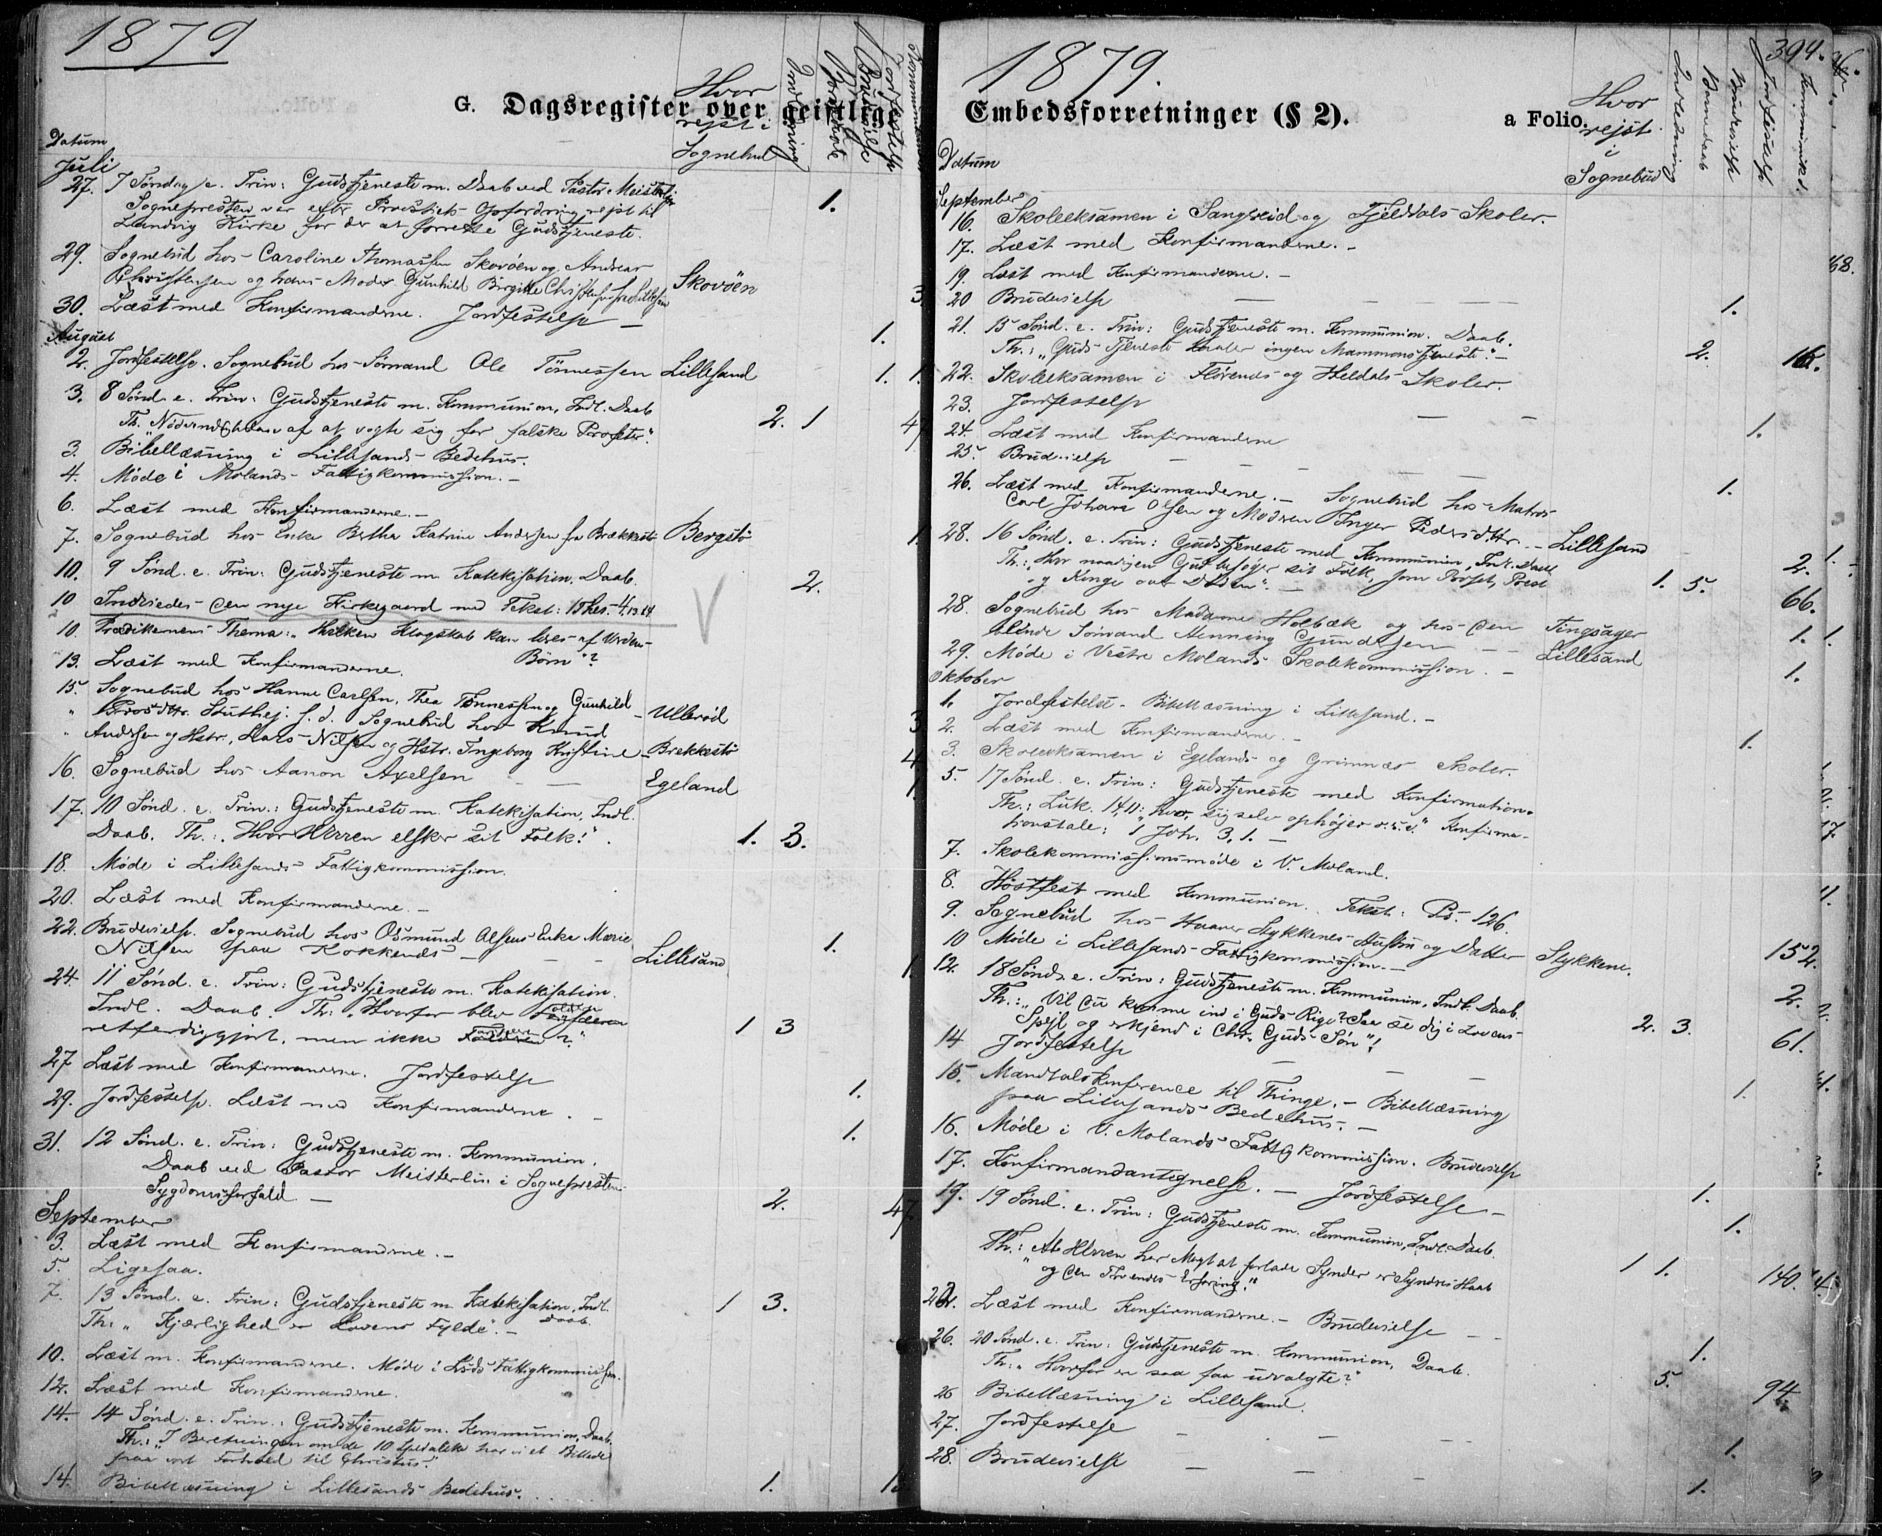 1879
G. Dagsregister over geistlige
Hvor rejst i Sognebud
Datum
Juli
27. 7 Søndag e. Trin: Gudstjeneste m. Daab ved Pastor Meisterlin 1.
Sognepresten var efter Provstiets Opfordring rejst til
Landvig Kirke for der at forrette Gudstjeneste.
29. Sognebud hos Caroline Thomassen Skovøen og Andreas
Christensen og hans Moder Gunhild Birgitte Skovøen 3
30. Læst med Konfirmanderne. Jordfestelse — 1.
August
2. Jordfestelse. Sognebud hos Sømand Ole Tønnessen Lillesand 1. 1.
3. 8 Sønd. e. Trin: Gudstjeneste m. Kommunion, Indl. Daab
Th. af at vogte sig for falske Profeter". 2. 1
3. Bibellæsning i Lillesands Bedehus.
4. Møde i Molands Fattigkommission. —
6. Læst med Konfirmanderne. —
7. Sognebud hos Enke Berthe Katrine Andersen fra Brækkestø Bergstø 1.
10. 9 Sønd. e. Trin: Gudstjeneste m. Katekisation, Daab. 2.
10 Indviedes den nye Kirkegaard med Tekst: 1 Thes. 4, 13, 14
10. Prædikenens Thema: "Hvilken Klogskab kan læres af Verdens
Børn"?
13. Læst med Konfirmanderne.
15. Sognebud hos Hanne Carlsen, Thea Tønnessen og Gunhild
" f. d. Sognebud hos Knud — Ulberød 3
" Andersen og Hstr., Lars Nilsen og Hstr. Ingeborg Kristine — Brekkestø 4.
16. Sognebud hos Aanon Axelsen — — Egeland 1.
17. 10 Sønd. e. Trin.: Gudstjeneste m. Katekisation, Indl.
Daab. Th.: "Hvor Herren elsker sit Folk!". 1. 3.
18. Møde i Lillesands Fattigkommission.
20. Læst med Konfirmanderne. —
22. Brudevielse. Sognebud hos Osmund Olsens Enke Marie 1.
Nilsen paa Kokkenes — — Lillesand 1.
24. 11 Sønd. e. Trin: Gudstjeneste m. Katekisation.
Indl. Daab. Th: "Hvorfor blev Tolderen
retfærdiggjort, men ikke Farisæeren?" 1 3
27 Læst med Konfirmanderne. Jordfestelse 1.
29. Jordfestelse. Læst med Konfirmanderne. — 1.
31. 12 Sønd. e. Trin: Gudstjeneste m. Kommunion.
Daab ved Pastor Meisterlin i Sogneprestens
Sygdomsforfald — 2. 47.
September
3. Læst med Konfirmanderne. —
5. Ligesaa.
7. 13 Sønd. e. Trin: Gudstjeneste m. Katekisation, Indl. Daab. 1 3.
Th: "Kjærlighed er Lovens Fylde". —
10. Læst m. Konfirmanderne. Møde i Lsds Fattigkommission.
12. Læst med Konfirmanderne.
14. 14 Sønd. e. Trin.: Gudstjeneste m. Kommunion, Daab.
Th.: "I Beretningen om de 10 Spedalske har vi et Billede
paa vort Forhold til Christus".
14. Bibellæsning i Lillesands Bedehus. 1.
1879.
394.
Embedsforretninger (§ 2).
a Folio.
Hvor rejst i Sognebud
Indledning
Barnedaab
Brudevielse
Jordfæstelse
Datum
September
16. Skoleeksamen i Sangreid og Fjeldals Skoler.
17. Læst med Konfirmanderne. —
19. Læst med Konfirmanderne. —
20 Brudevielse — — — 1.
21. 15 Sønd. e. Trin: Gudstjeneste m. Kommunion. Daab.
Th.: "Guds Tjeneste taaler ingen Mammonstjeneste". — 2. 16.
22. Skoleeksamen i Florenes og Heldals Skoler.
23. Jordfestelse — — 1.
24. Læst med Konfirmanderne
25. Brudevielse — — — 1.
26. Læst med Konfirmanderne. — Sognebud hos Matros
Carl Johan Olsen og Modren Inger Pedersdtr. — Lillesand 2.
28. 16 Sønd. e. Trin: Gudstjeneste med Kommunion, Indl. Daab
Th.: "Hvor naadigen Gud besøger sit Folk, som Profet, Prest
og Konge over Døden". — 1. 5. 66.
28. Sognebud hos Madame Holbæk og hos den Tingsager 1.
blinde Sømand Henning Gundersen — — Lillesand 1.
29. Møde i Vestre Molands Skolekommission. —
Oktober
1. Jordfestelse — Bibellæsning i Lillesand. — 1.
2. Læst med Konfirmanderne. —
3. Skoleeksamen i Egelands og Grimnæs Skoler.
5. 17 Sønd. e. Trin: Gudstjeneste med Konfirmation.
Th.: Luk. 14,11: "Hvo sig selv ophøjer o. s. v." Konfirma-
tionstale: 1 Joh. 3, 1. —
7. Skolekommissionsmøde i V. Moland.
8. Høstfest med Kommunion. Tekst: Ps. 126. 152.
9. Sognebud hos Haaver Stykkenes Hustru og Datter Stykkene. 2.
10 Møde i Lillesands Fattigkommission. —
12. 18 Sønd. e. Trin: Gudstjeneste m. Kommunion, Indl. Daab.
Th.: "Vil du komme ind i Guds Rige? Saa se dig i Lovens
Spejl og erkjend i Chr. Guds Søn"! 2. 3. 61.
14 Jordfestelse — — — 1.
15. Mandtalskonference til Thinge. — Bibellæsning
paa Lillesands Bedehus. —
16. Møde i V. Molands Fattigkommission. Brudevielse 1.
17. Konfirmandantegnelse. — Jordfestelse — 1.
19. 19 Sønd. e. Trin: Gudstjeneste m. Kommunion, Indl. Daab.
Th.: "At Herren har Magt at forlade Synder er Syndres Haab
og den Troendes Erfaring." 1 1. 140.
22. Læst med Konfirmanderne. — Brudevielse — — 1.
26. 20 Sønd. e. Trin: Gudstjeneste m. Kommunion, Daab.
Th.: "Hvorfor er saa faa udvalgte?" 5. 94.
26 Bibellæsning i Lillesand.
27. Jordfestelse — — — 1.
28. Brudevielse — — — 1.